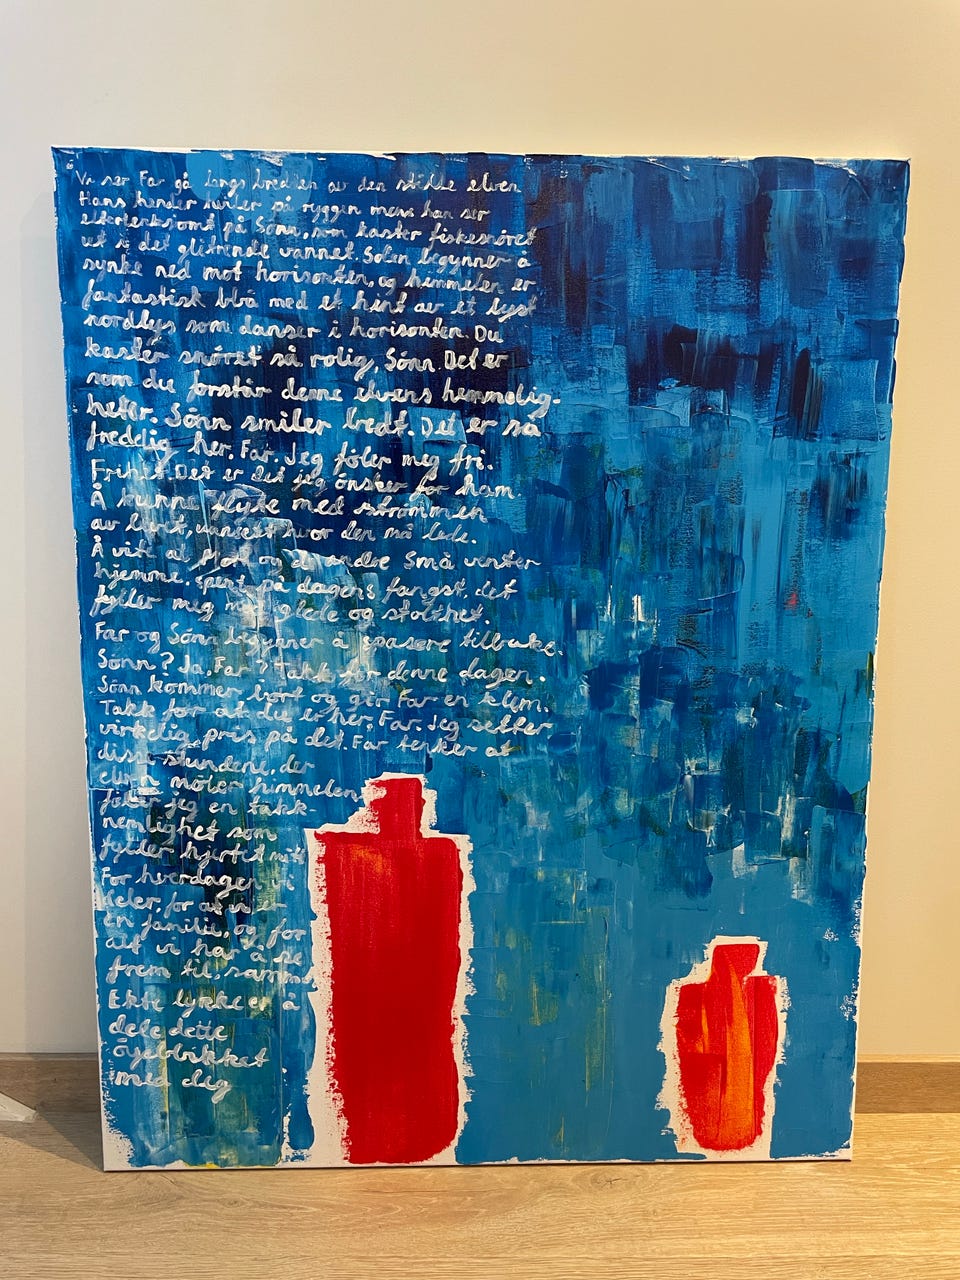 Vi ser Far gå langs bredden av den stille elven
Hans hender hviler på ryggen mens han ser
ettertenksomt på Sønn, som kaster fiskesnøret
ut i det glitrende vannet. Solen begynner å
synke ned mot horisonten, og himmelen er
fantastisk blå med et hint av et lyst
nordlys som danser i horisonten. Du
kaster snøret så rolig, Sønn. Det er
som du forstår denne elvens hemmelig-
heter. Sønn smiler bredt. Det er så
fredelig her, Far. Jeg føler meg fri.
Frihet. Det er det jeg ønsker for ham.
Å kunne flyte med strømmen
av livet, uansett hvor den må lede.
Å vite at Mor og de andre små venter
hjemme, spent på dagens fangst, det
fyller meg med glede og stolthet.
Far og Sønn begynner å spasere tilbake.
Sønn? Ja, Far? Takk for denne dagen.
Sønn kommer bort og gir Far en klem.
Takk for at du er her, Far. Jeg setter
virkelig pris på det. Far tenker at
disse stundene, der
elven møter himmelen
føler jeg en takk-
nemlighet som
fyller hjertet mitt
For hverdagen vi
deler, for at vi er
en familie, og for
alt vi har å se
frem til, sammen
Ekte lykke er å
dele dette
øyeblikket
med deg